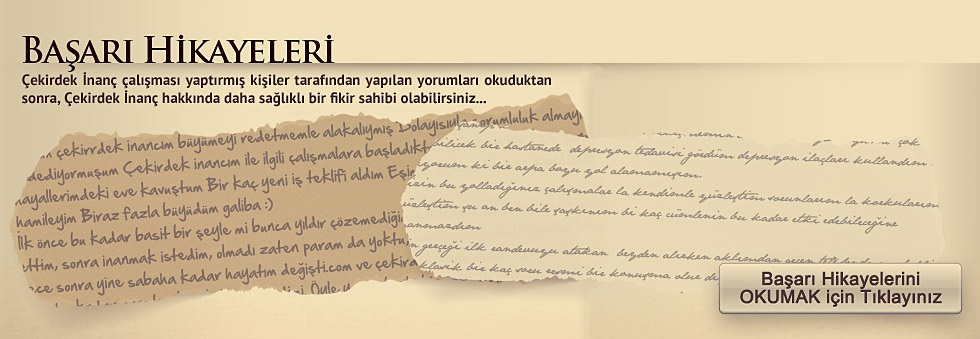 BAŞARI HİKAYELERİ
Çekirdek İnanç çalışması yaptırmış kişiler tarafından yapılan yorumları okuduktan
sonra, Çekirdek İnanç hakkında daha sağlıklı bir fikir sahibi olabilirsiniz...
çekirrdek inancım büyümeyi redetmemle alakalıymış Dolayısıyla sorumluluk almayı
dediyormuşum Çekirdek inancım ile ilgili çalışmalara başladıkt
hayallerimdeki eve kavuştum Bir kaç yeni iş teklifi aldım Eşle
hamileyim Biraz fazla büyüdüm galiba :)
İlk önce bu kadar basit bir şeyle mi bunca yıldır çözemediğin
ettim, sonra inanmak istedim, olmadı zaten param da yoktu
ce sonra yine sabaha kadar hayatım değişti.com ve çekira
Öyle
çok
bilicek bir hastanede depresyon tedavisi gördüm depresyon ilaçları kullandım
yorum ki bir arpa boyu yol alamamışım.
bu yolladığınız çalışmalar la kendimle yüzleştim sorunlarım la korkularım
şu an ben bile şaşkınım bi kaç cümlenin bu kadar etki edebileceğine
gerçeği ilk randevuyu atakan beyden alırken aklımdan
klasik bir kaç soru resmi bir konuşma olur
Başarı Hikayelerini
OKUMAK için Tıklayınız